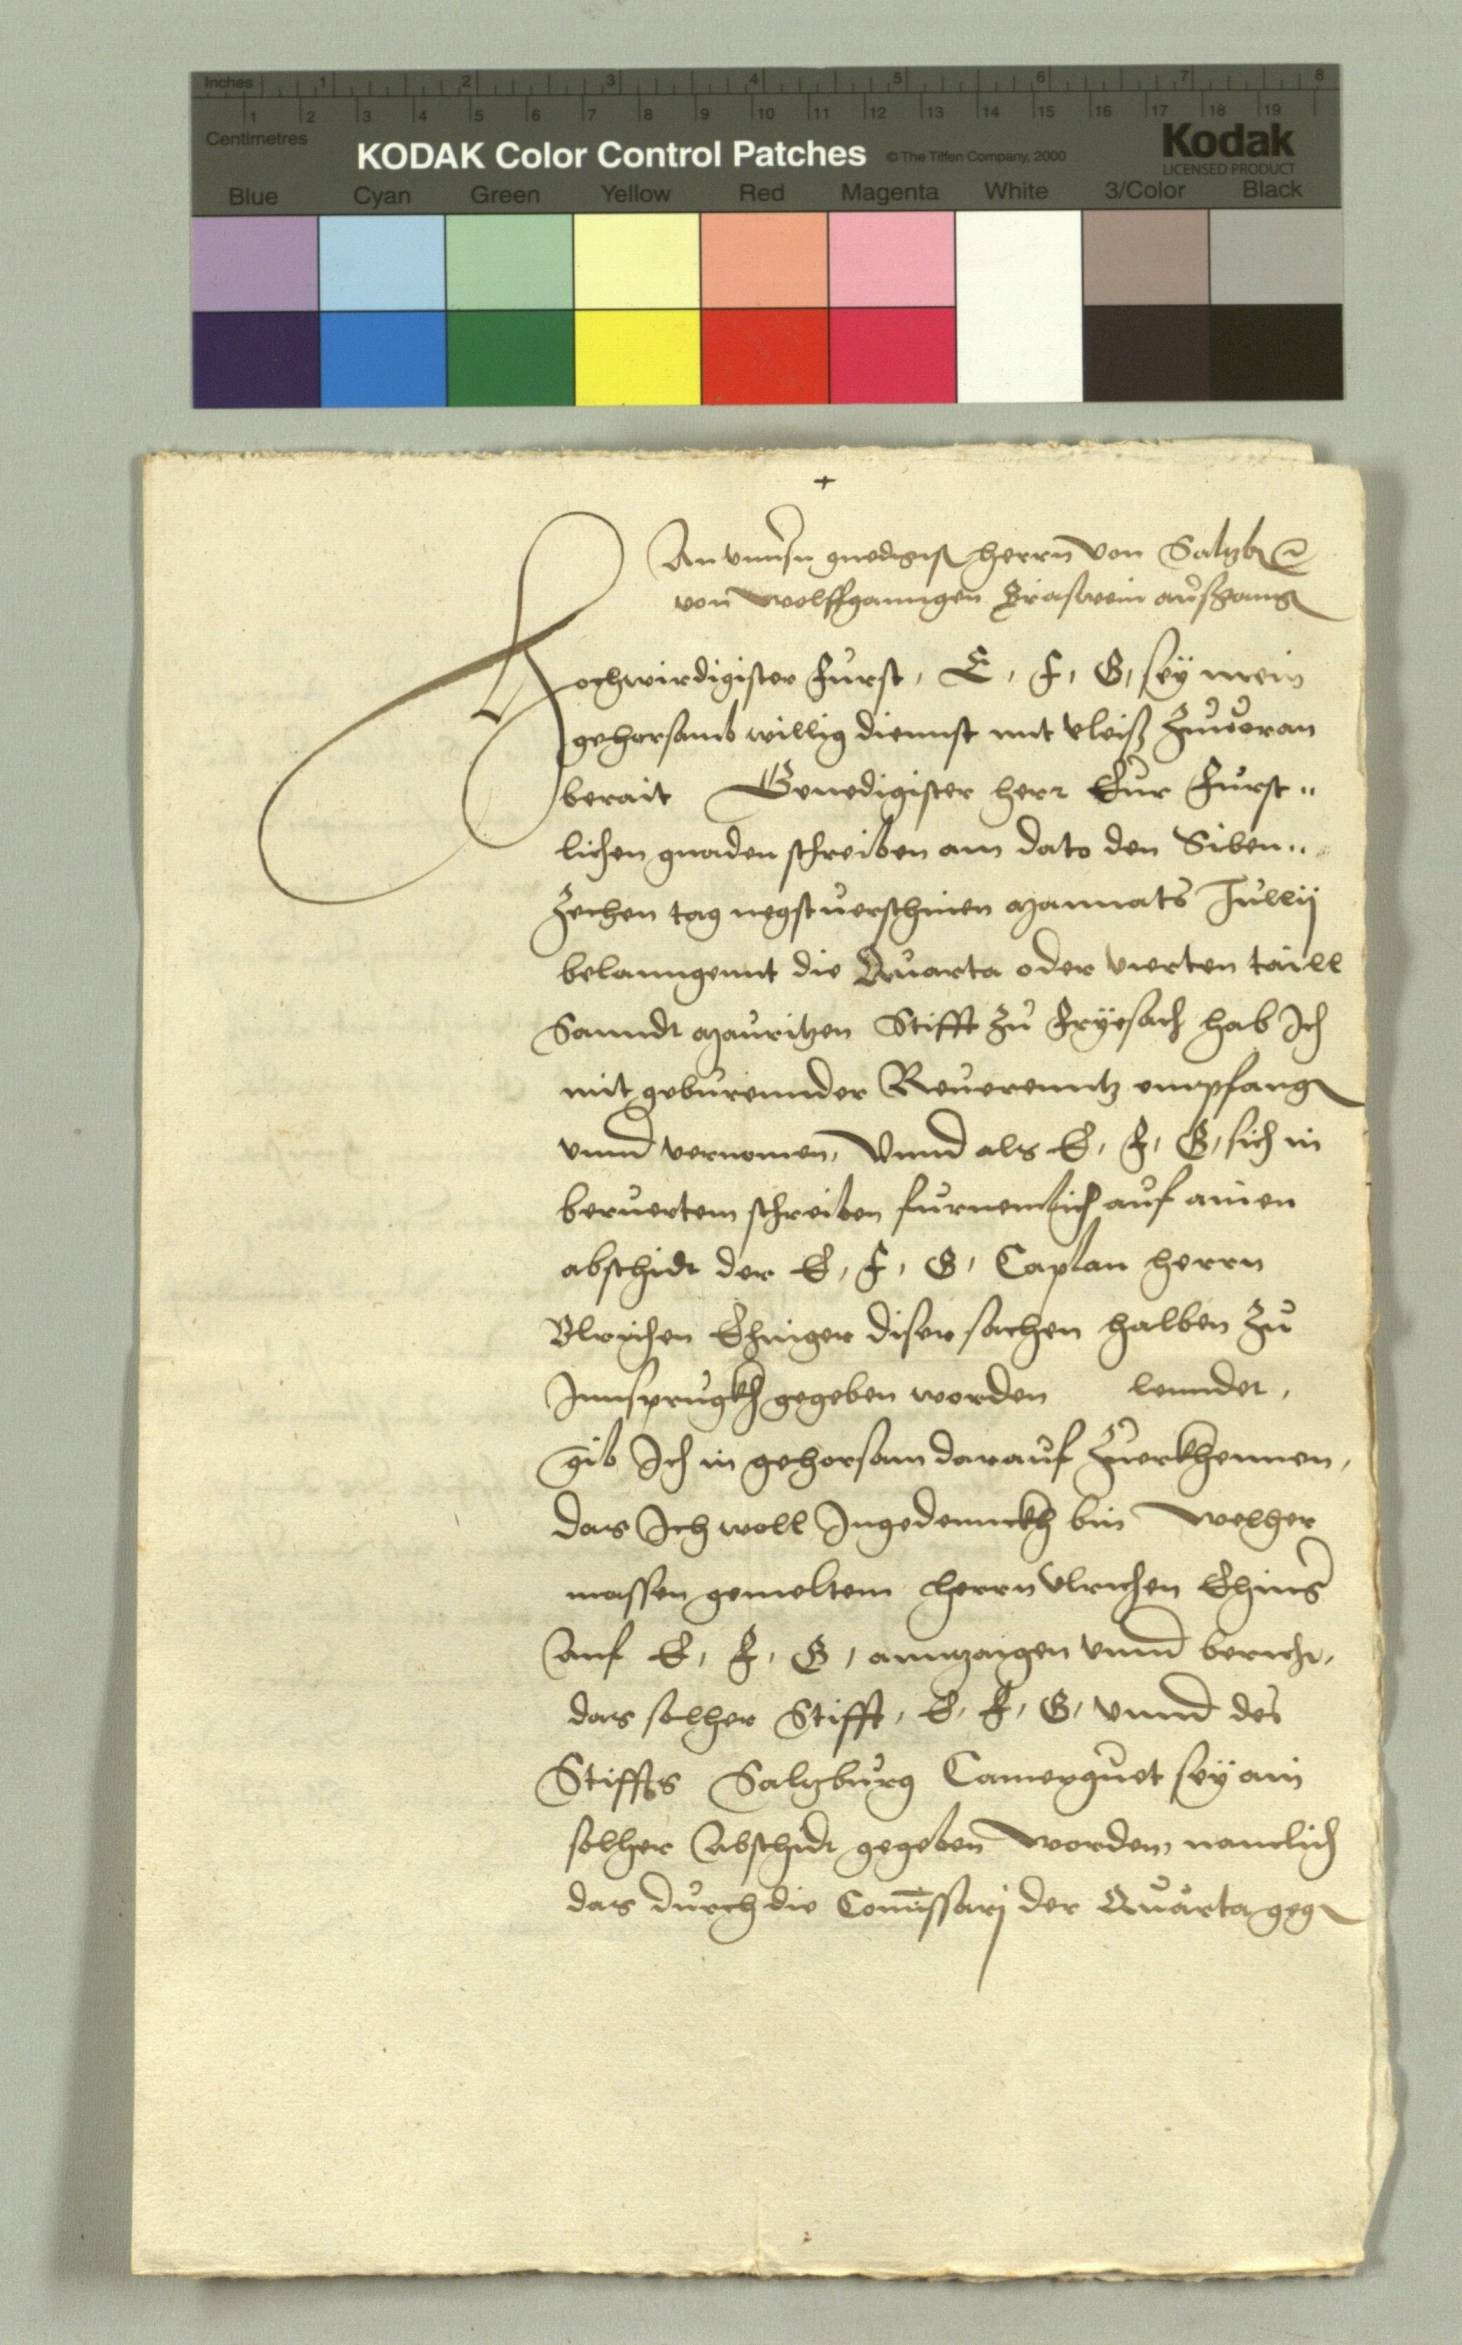 Inches 1 2 3 4 5 6 7 8
1 2 3 4 5 6 7 8 9 10 11 12 13 14 15 16 17 18 19
Centimetres
KODAK Color Control Patches © The Tiffen Company, 2000 Kodak
LICENSED PRODUCT
Blue Cyan Green Yellow Red Magenta White 3/Color Black
+
An gnedigist herrn von Salzb
von Wolffganngen auſganng
Hochwirdigister Furst, E, F, G, sey mein
gehorsamb willig diennst mit vleiß zuuoran
berait Genedigister herr Eur Furst..
lichen gnaden schreiben am dato den Siben..
zechen tag negstuerschinen Mannats Jullij
belanngennt die Quarta oder vierten taill
Sanndt Mauritzen Stifft zu Fryesach hab Ich
mit geburennder Reuerenntz empfang
vnnd vernomen, Vnnd als E, F, G, sich in
beruertem schreiben furnemlich auf ainen
abschidt der E, F, G, Caplan herrn
Vlrichen Ehinger diser sachen halben zu
Innsprugkh gegeben worden lenndet,
gib Ich in gehorsam darauf zuerkhennen,
das Ich woll Ingedennckh bin welher
massen gemeltem herrn Vlrichen Ehing
Auf E, F, G, annzaigen vnnd bericht,
das solher Stifft, E, F, G, vnnd des
Stiffts Salzburg Camerguet sey ain
solher Abschidt gegeben worden, namlich
das durch die Comissarj der Quarta geg